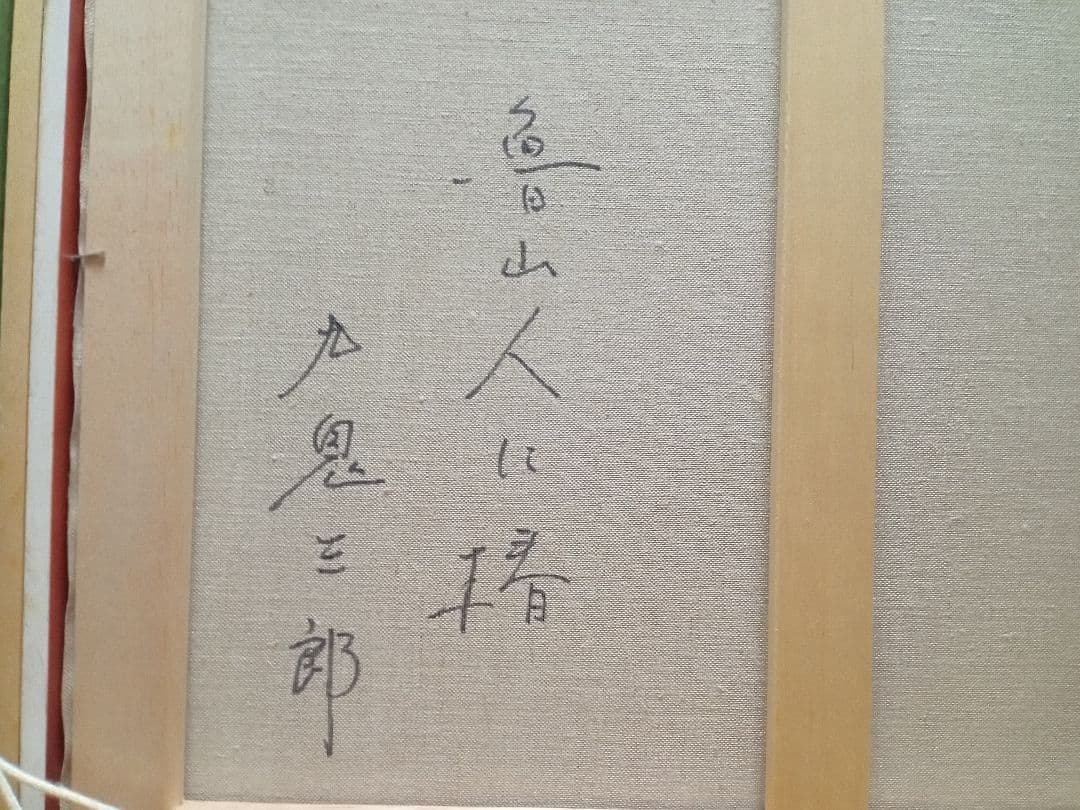 魯山人に椿
九鬼三郎